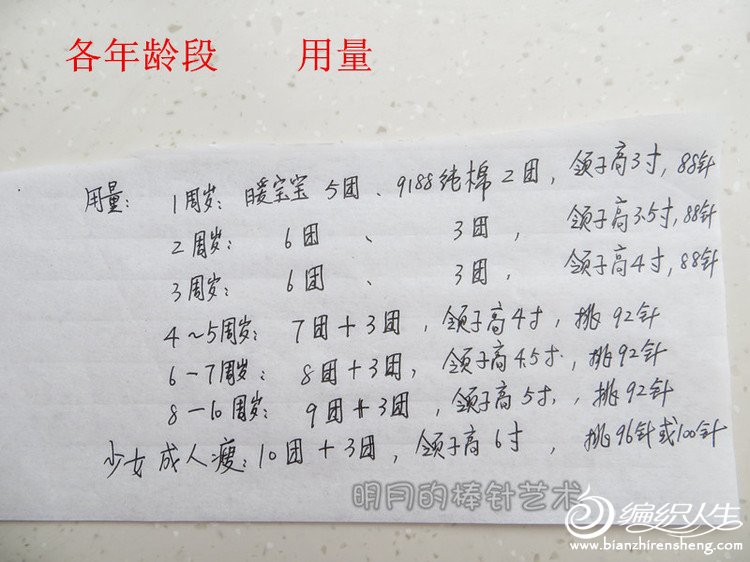 各年龄段 用量
用量: 1周岁: 暖宝宝 5团、9188纯棉2团, 领子高3寸, 88针
2周岁: 6团 、 3团 , 领子高3.5寸, 88针
3周岁: 6团 、 3团 , 领子高4寸, 88针
4~5周岁: 7团+3团, 领子高4寸, 挑92针
6-7周岁: 8团+3团, 领子高4.5寸, 挑92针
8-10周岁: 9团+3团, 领子高5寸, 挑92针
少女成人瘦: 10团+3团, 领子高6寸 , 挑96针或100针
明月的棒针艺术
编织人生
www.bianzhirensheng.com